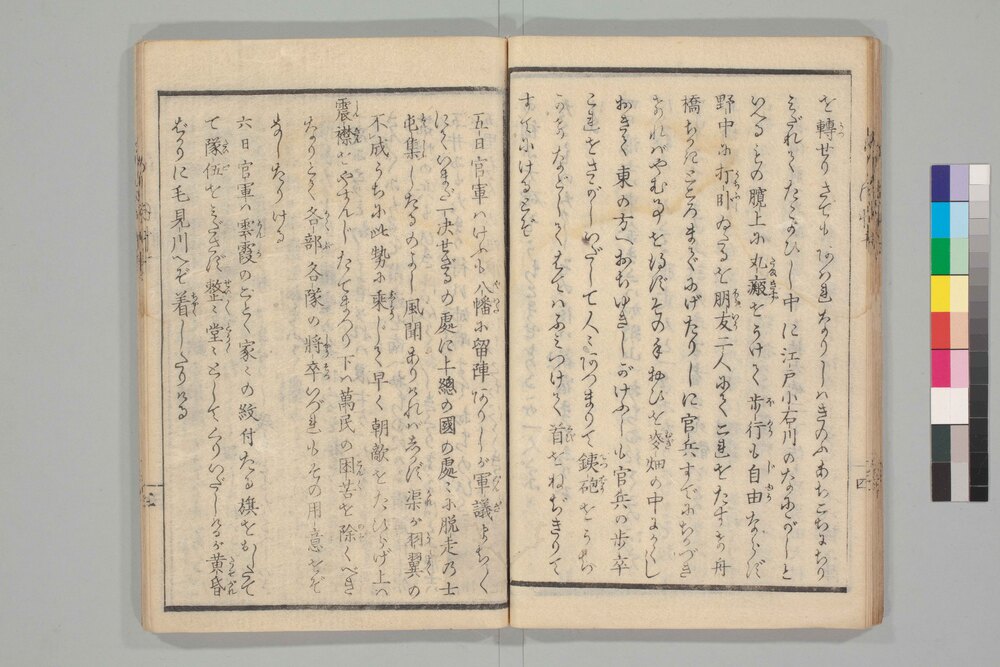 を轉せりさても阿はれなりしはきのふあちこちにちり
みだれてたゝかひし中に江戸小石川のなにがしと
いへるもの膸上に丸瘢をうけて歩行も自由ならず
野中に打臥ゐたるを朋友二人にてこれをたすけ舟
橋ちかきところまでにげたりしに官兵すでにちかづき
ければやむ事を得ずその手おひを麥畑の中にかくし
おきて東の方へおちゆきしがけふしも官兵の歩卒
これをさがしいだして人々阿つまりて銕砲をうち
かけなどしてはてはふみつけて首をねぢきりて
すてにけるとぞ
五日官軍はけふも八幡に留陣阿りしが軍議まちまち
にていまだ一決せざるの處に上總の國の處々に脱走の士
屯集したるのよし風聞ありければ志らず渠が羽翼の
不成うちに此勢に乘じて早く朝敵をたひらげ上は
震襟をやすんじたてまつり下は萬民の困苦を除くべき
なりとて各部各隊の將卒いづれもその用意をぞ
なしたりける
六日官軍は雲霞のごとく家々の紋付たる旗をおしたて
て隊伍をみださず整々堂々としてくりいだしけるが黄昏
ちかりに毛見川へぞ着したりける